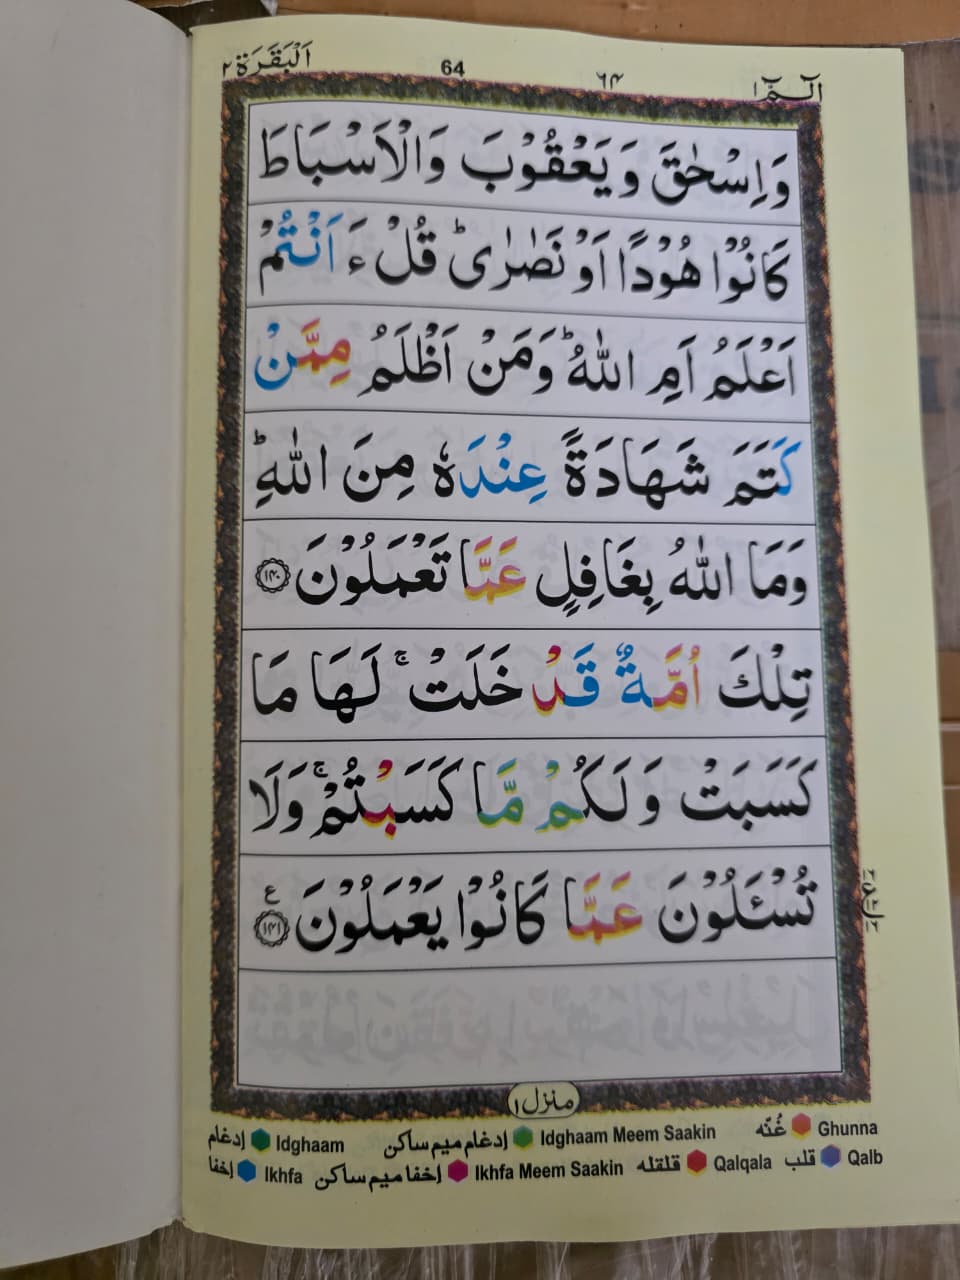 اَلْبَقَرَة ٢
64
٦٤
الٓمّٓ ١
وَاِسْحٰقَ وَيَعْقُوْبَ وَالْاَسْبَاطَ
كَانُوْا هُوْدًا اَوْ نَصٰرٰى ؕ قُلْ ءَاَنْتُمْ
اَعْلَمُ اَمِ اللّٰهُ ؕ وَمَنْ اَظْلَمُ مِمَّنْ
كَتَمَ شَهَادَةً عِنْدَهٗ مِنَ اللّٰهِ ؕ
وَمَا اللّٰهُ بِغَافِلٍ عَمَّا تَعْمَلُوْنَ ١٤٠
تِلْكَ اُمَّةٌ قَدْ خَلَتْ ۚ لَهَا مَا
كَسَبَتْ وَلَكُمْ مَّا كَسَبْتُمْ ۚ وَلَا
تُسْـَٔلُوْنَ عَمَّا كَانُوْا يَعْمَلُوْنَ ١٤١ ع
منزل ١
Ghunna غُنّه Idghaam Meem Saakin إدغام ميم ساكن Idghaam إدغام
Qalb قلب Qalqala قلقله Ikhfa Meem Saakin إخفا ميم ساكن Ikhfa إخفا